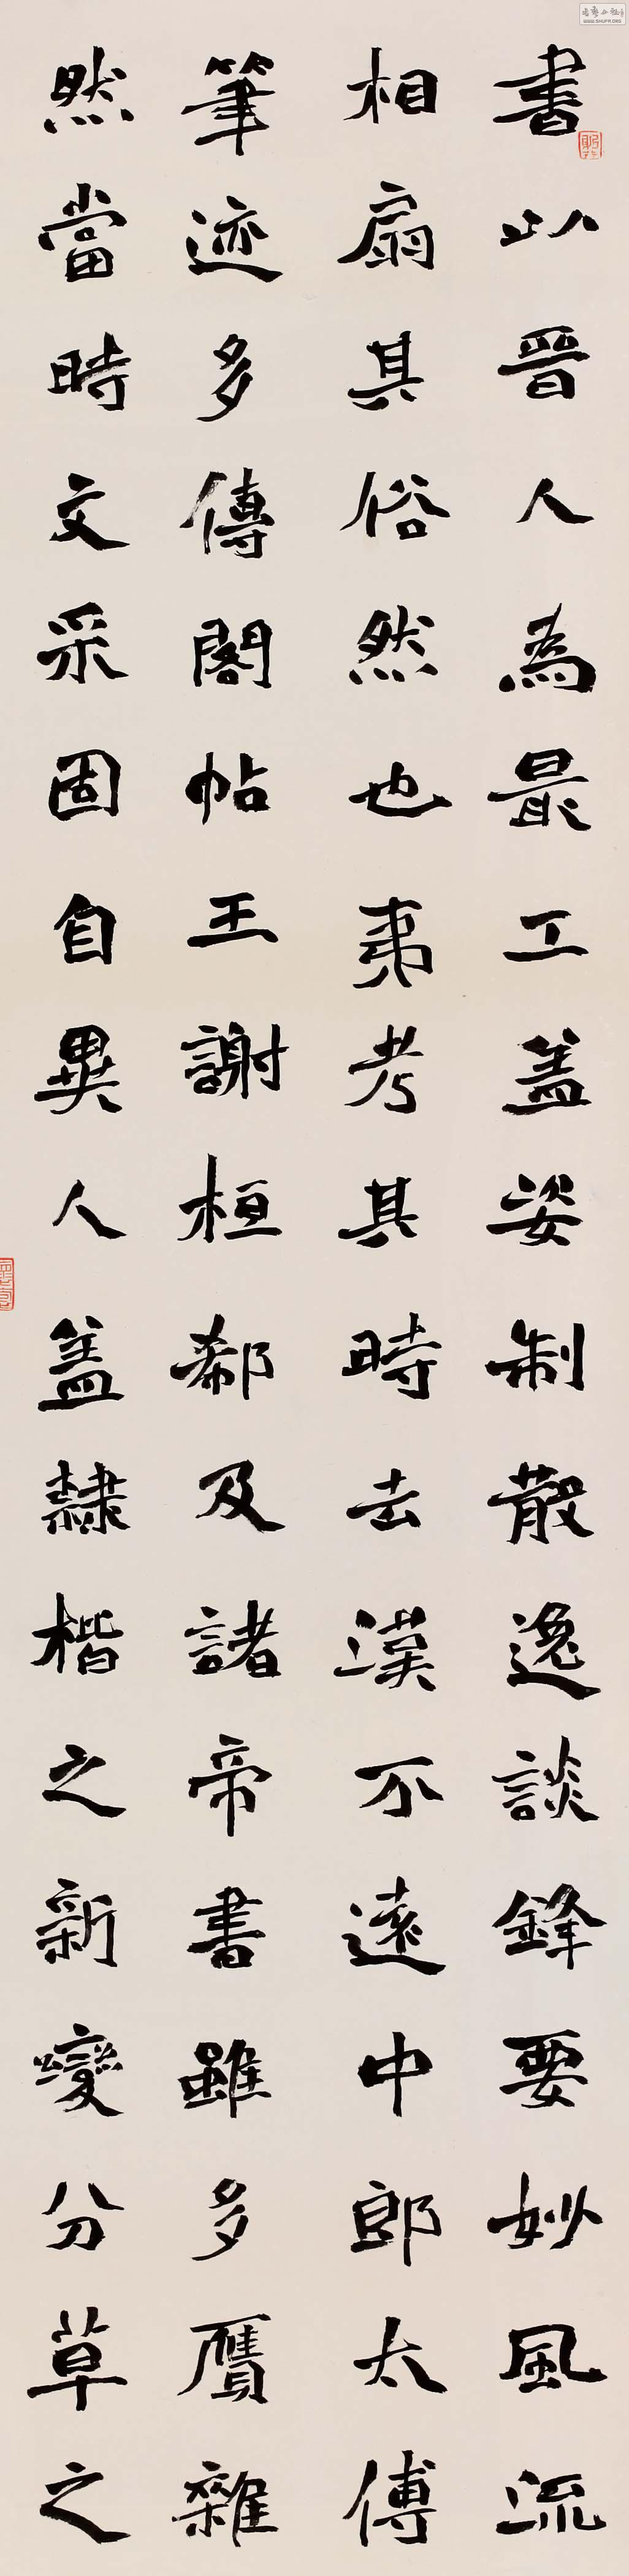 書以晉人為最工蓋姿制散逸談鋒要妙風流
相扇其俗然也夷考其時去漢不遠中郎太傅
筆迹多傳閣帖王謝桓郗及諸帝書雖多贗雜
然當時文采固自異人蓋隸楷之新變分草之
WWW.SHUFA.ORG